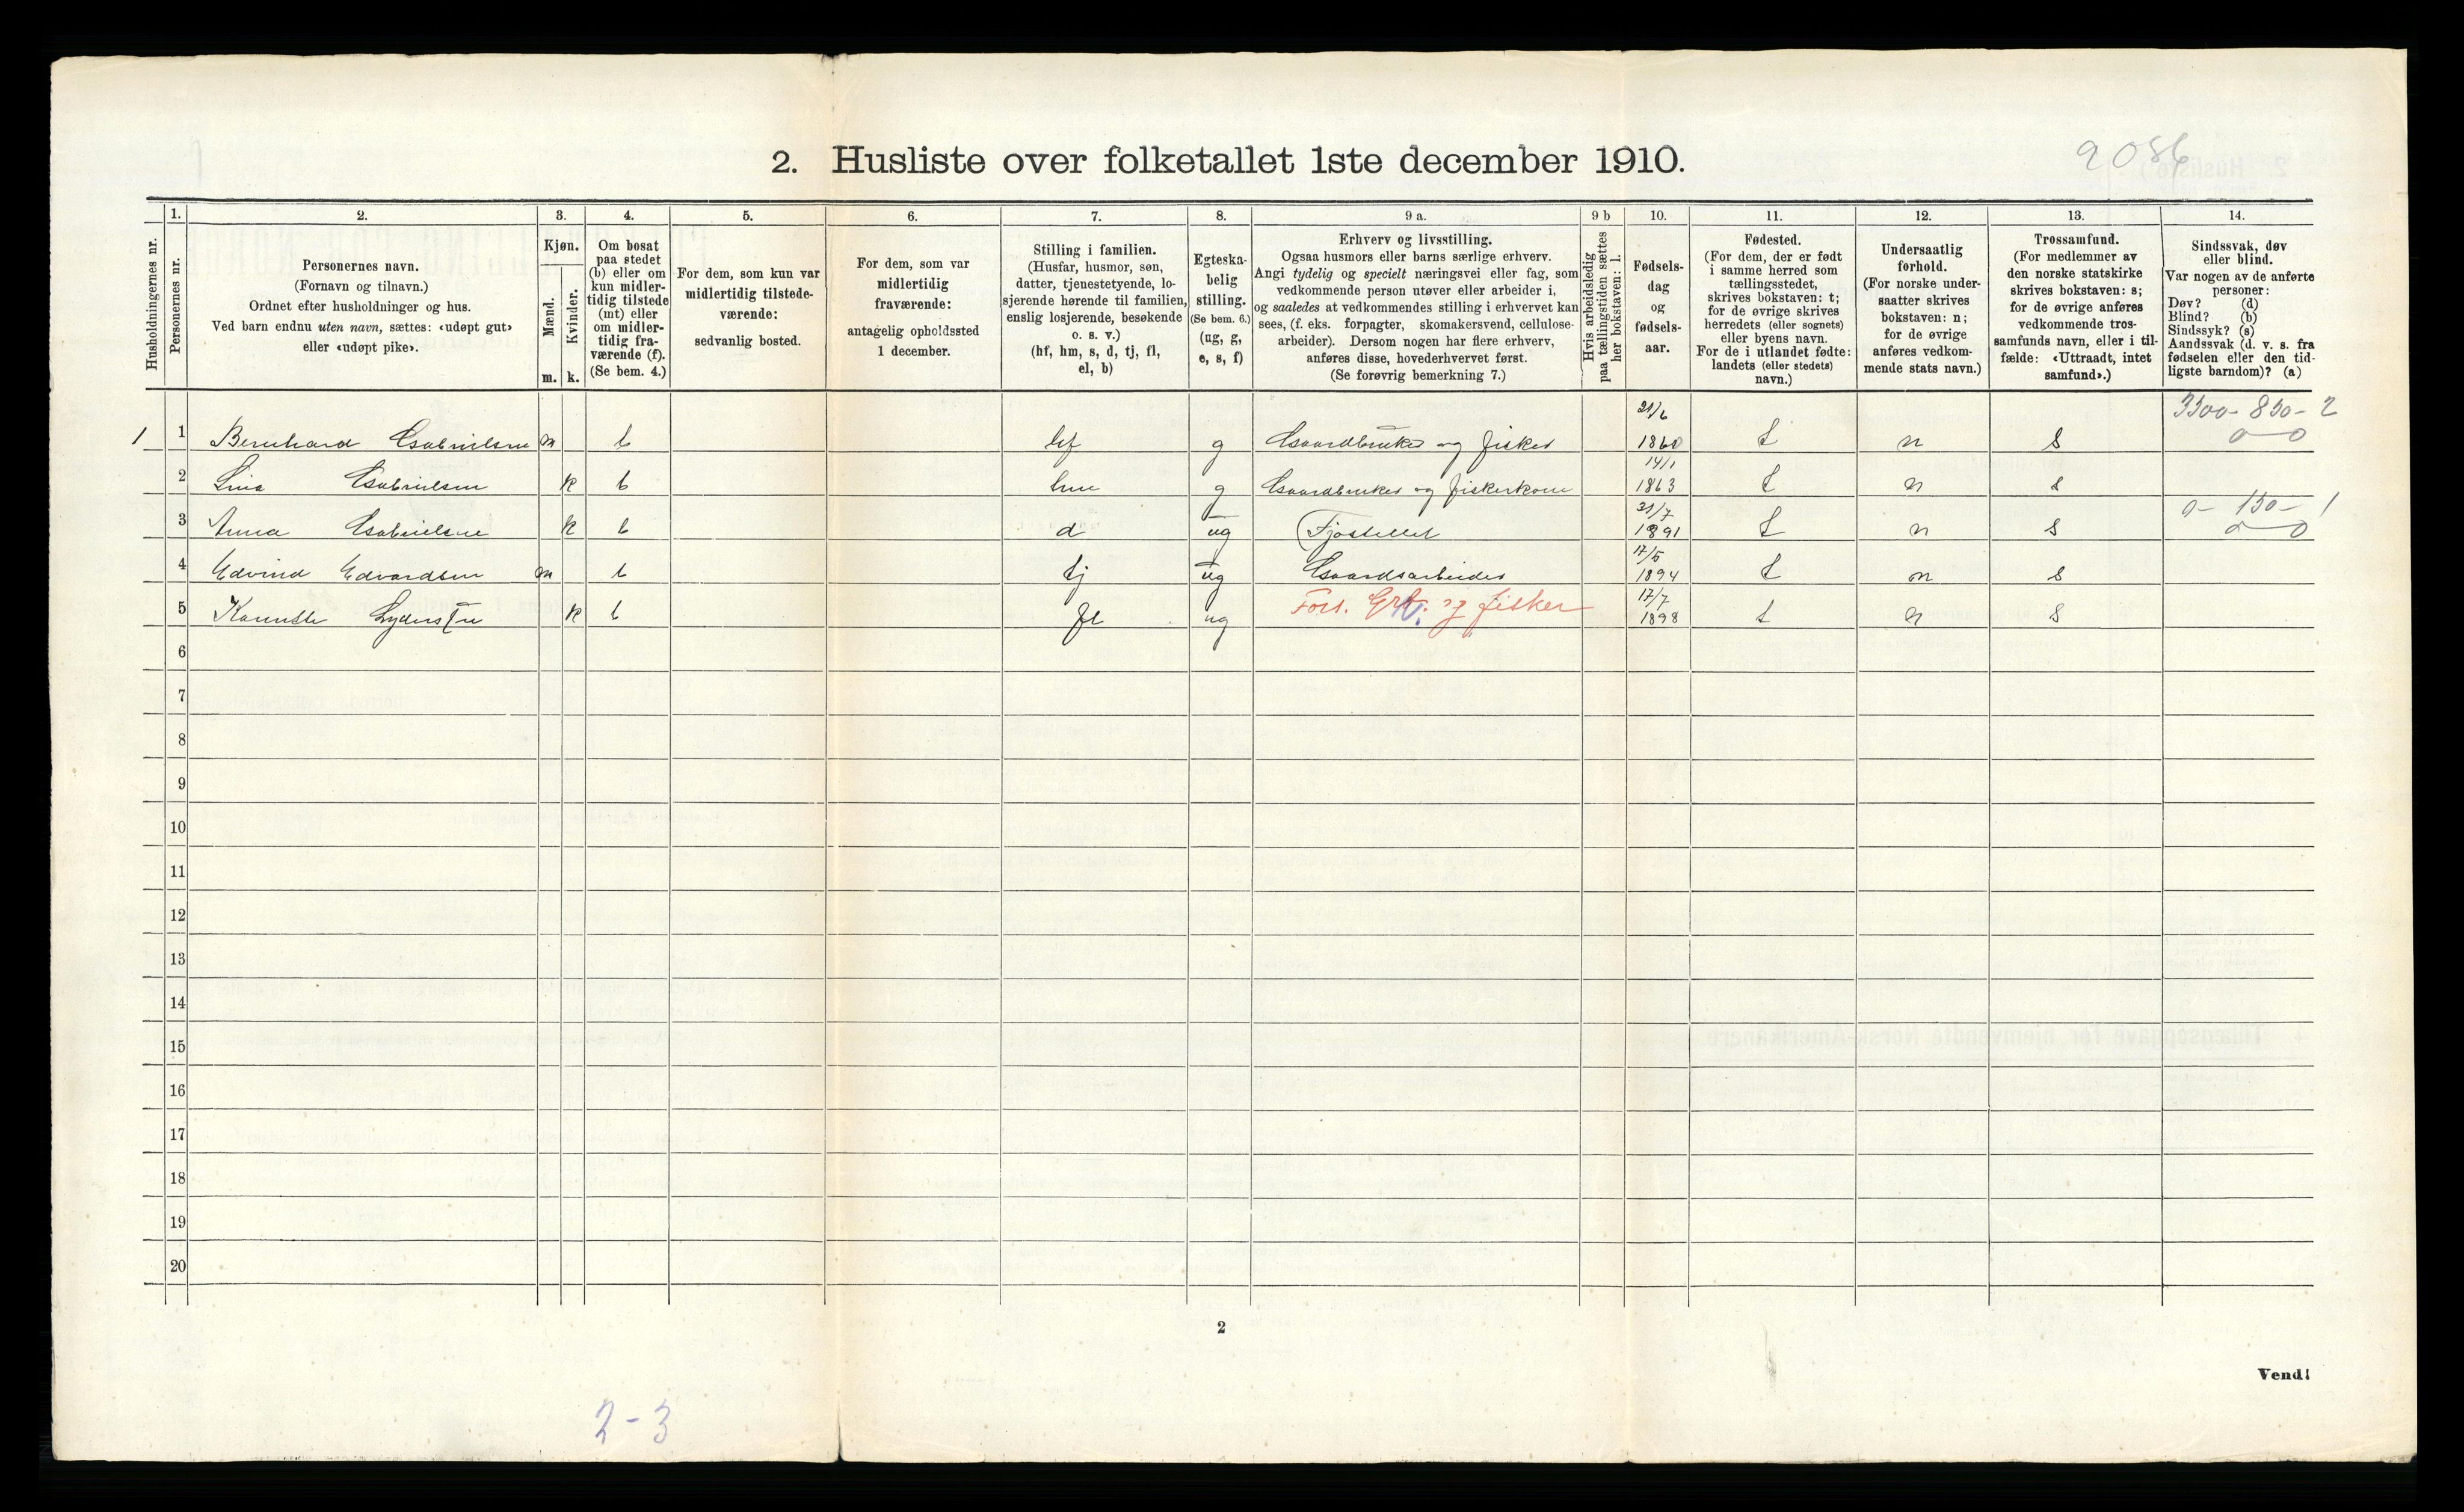 2. Husliste over folketallet 1ste december 1910.
9086
Husholdningernes nr.
1. Personernes nr.
2. Personernes navn. (Fornavn og tilnavn.) Ordnet efter husholdninger og hus. Ved barn endnu uten navn, sættes: «udøpt gut» eller «udøpt pike».
3. Kjøn. Mænd. m. Kvinder. k.
4. Om bosat paa stedet (b) eller om kun midlertidig tilstede (mt) eller om midlertidig fraværende (f). (Se bem. 4.)
5. For dem, som kun var midlertidig tilstedeværende: sedvanlig bosted.
6. For dem, som var midlertidig fraværende: antagelig opholdssted 1 december.
7. Stilling i familien. (Husfar, husmor, søn, datter, tjenestetyende, losjerende hørende til familien, enslig losjerende, besøkende o. s. v.) (hf, hm, s, d, tj, fl, el, b)
8. Egteskabelig stilling. (Se bem. 6.) (ug, g, e, s, f)
9 a. Erhverv og livsstilling. Ogsaa husmors eller barns særlige erhverv. Angi tydelig og specielt næringsvei eller fag, som vedkommende person utøver eller arbeider i, og saaledes at vedkommendes stilling i erhvervet kan sees, (f. eks. forpagter, skomakersvend, cellulosearbeider). Dersom nogen har flere erhverv, anføres disse, hovederhvervet først. (Se forøvrig bemerkning 7.)
9 b Hvis arbeidsledig paa tællingstiden sættes her bokstaven: l.
10. Fødselsdag og fødselsaar.
11. Fødested. (For dem, der er født i samme herred som tællingsstedet, skrives bokstaven: t; for de øvrige skrives herredets (eller sognets) eller byens navn. For de i utlandet fødte: landets (eller stedets) navn.)
12. Undersaatlig forhold. (For norske undersaatter skrives bokstaven: n; for de øvrige anføres vedkommende stats navn.)
13. Trossamfund. (For medlemmer av den norske statskirke skrives bokstaven: s; for de øvrige anføres vedkommende trossamfunds navn, eller i tilfælde: «Uttraadt, intet samfund».)
14. Sindssvak, døv eller blind. Var nogen av de anførte personer: Døv? (d) Blind? (b) Sindssyk? (s) Aandssvak (d. v. s. fra fødselen eller den tidligste barndom)? (a)
3300- 850- 2
1 1 Bernhard Gabrielsen m b hf g Gaardbruker og fisker 21/6 1860 t n s 0 0
2 Lina Gabrielsen k b hm g Gaardbruker og fiskerkone 14/1 1863 t n s
0- 150- 1
3 Anna Gabrielsen k b d ug Fjøstellet 31/7 1891 t n s 0 0
4 Edvind Edvardsen m b tj ug Gaardsarbeider 17/5 1894 t n s
5 k b fl ug Fors. Grb. og fisker 17/7 1898 t n s
6
7
8
9
10
11
12
13
14
15
16
17
18
19
20
2
Vend!
2-3